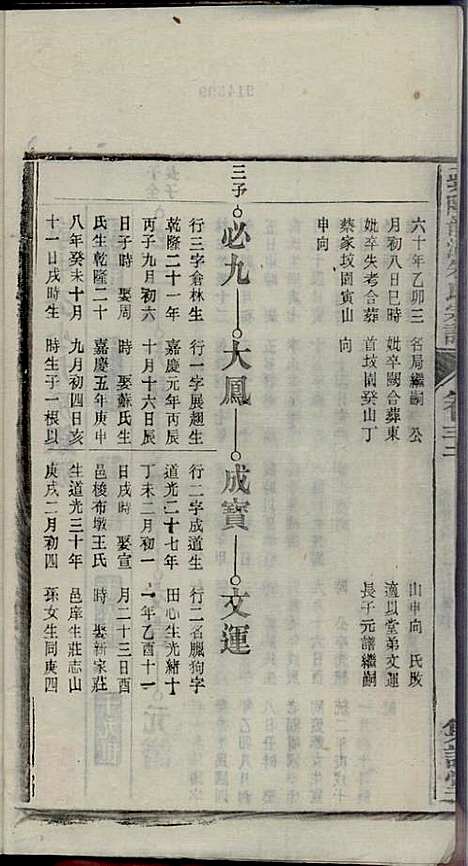 六十年乙卯三
月初八日巳時
妣卒失考合葬
蔡家坟園寅山
申向
名局繼嗣 公
妣卒闕合葬東
首坟園癸山丁
向
山申向 氏歿
適以堂弟文運
長子元譜繼嗣
三子 必九 大鳳 成寶 文運
行三字倉林生
乾隆二十一年
丙子九月初六
日子時 娶周
氏生乾隆二十
八年癸未十月
十一日戌時生
行一字展趨生
嘉慶元年丙辰
十月十六日辰
時 娶蘇氏生
嘉慶五年庚申
九月初四日亥
時生子一根以
行二字成道生
道光二十七年
丁未二月初一
日戌時 娶宣
邑梭布墩王氏
生道光三十年
庚戌二月初四
行二名臘狗字
田心生光緒十
一年乙酉十一
月二十三日酉
時 娶新家莊
邑庠生莊志山
孫女生同庚四